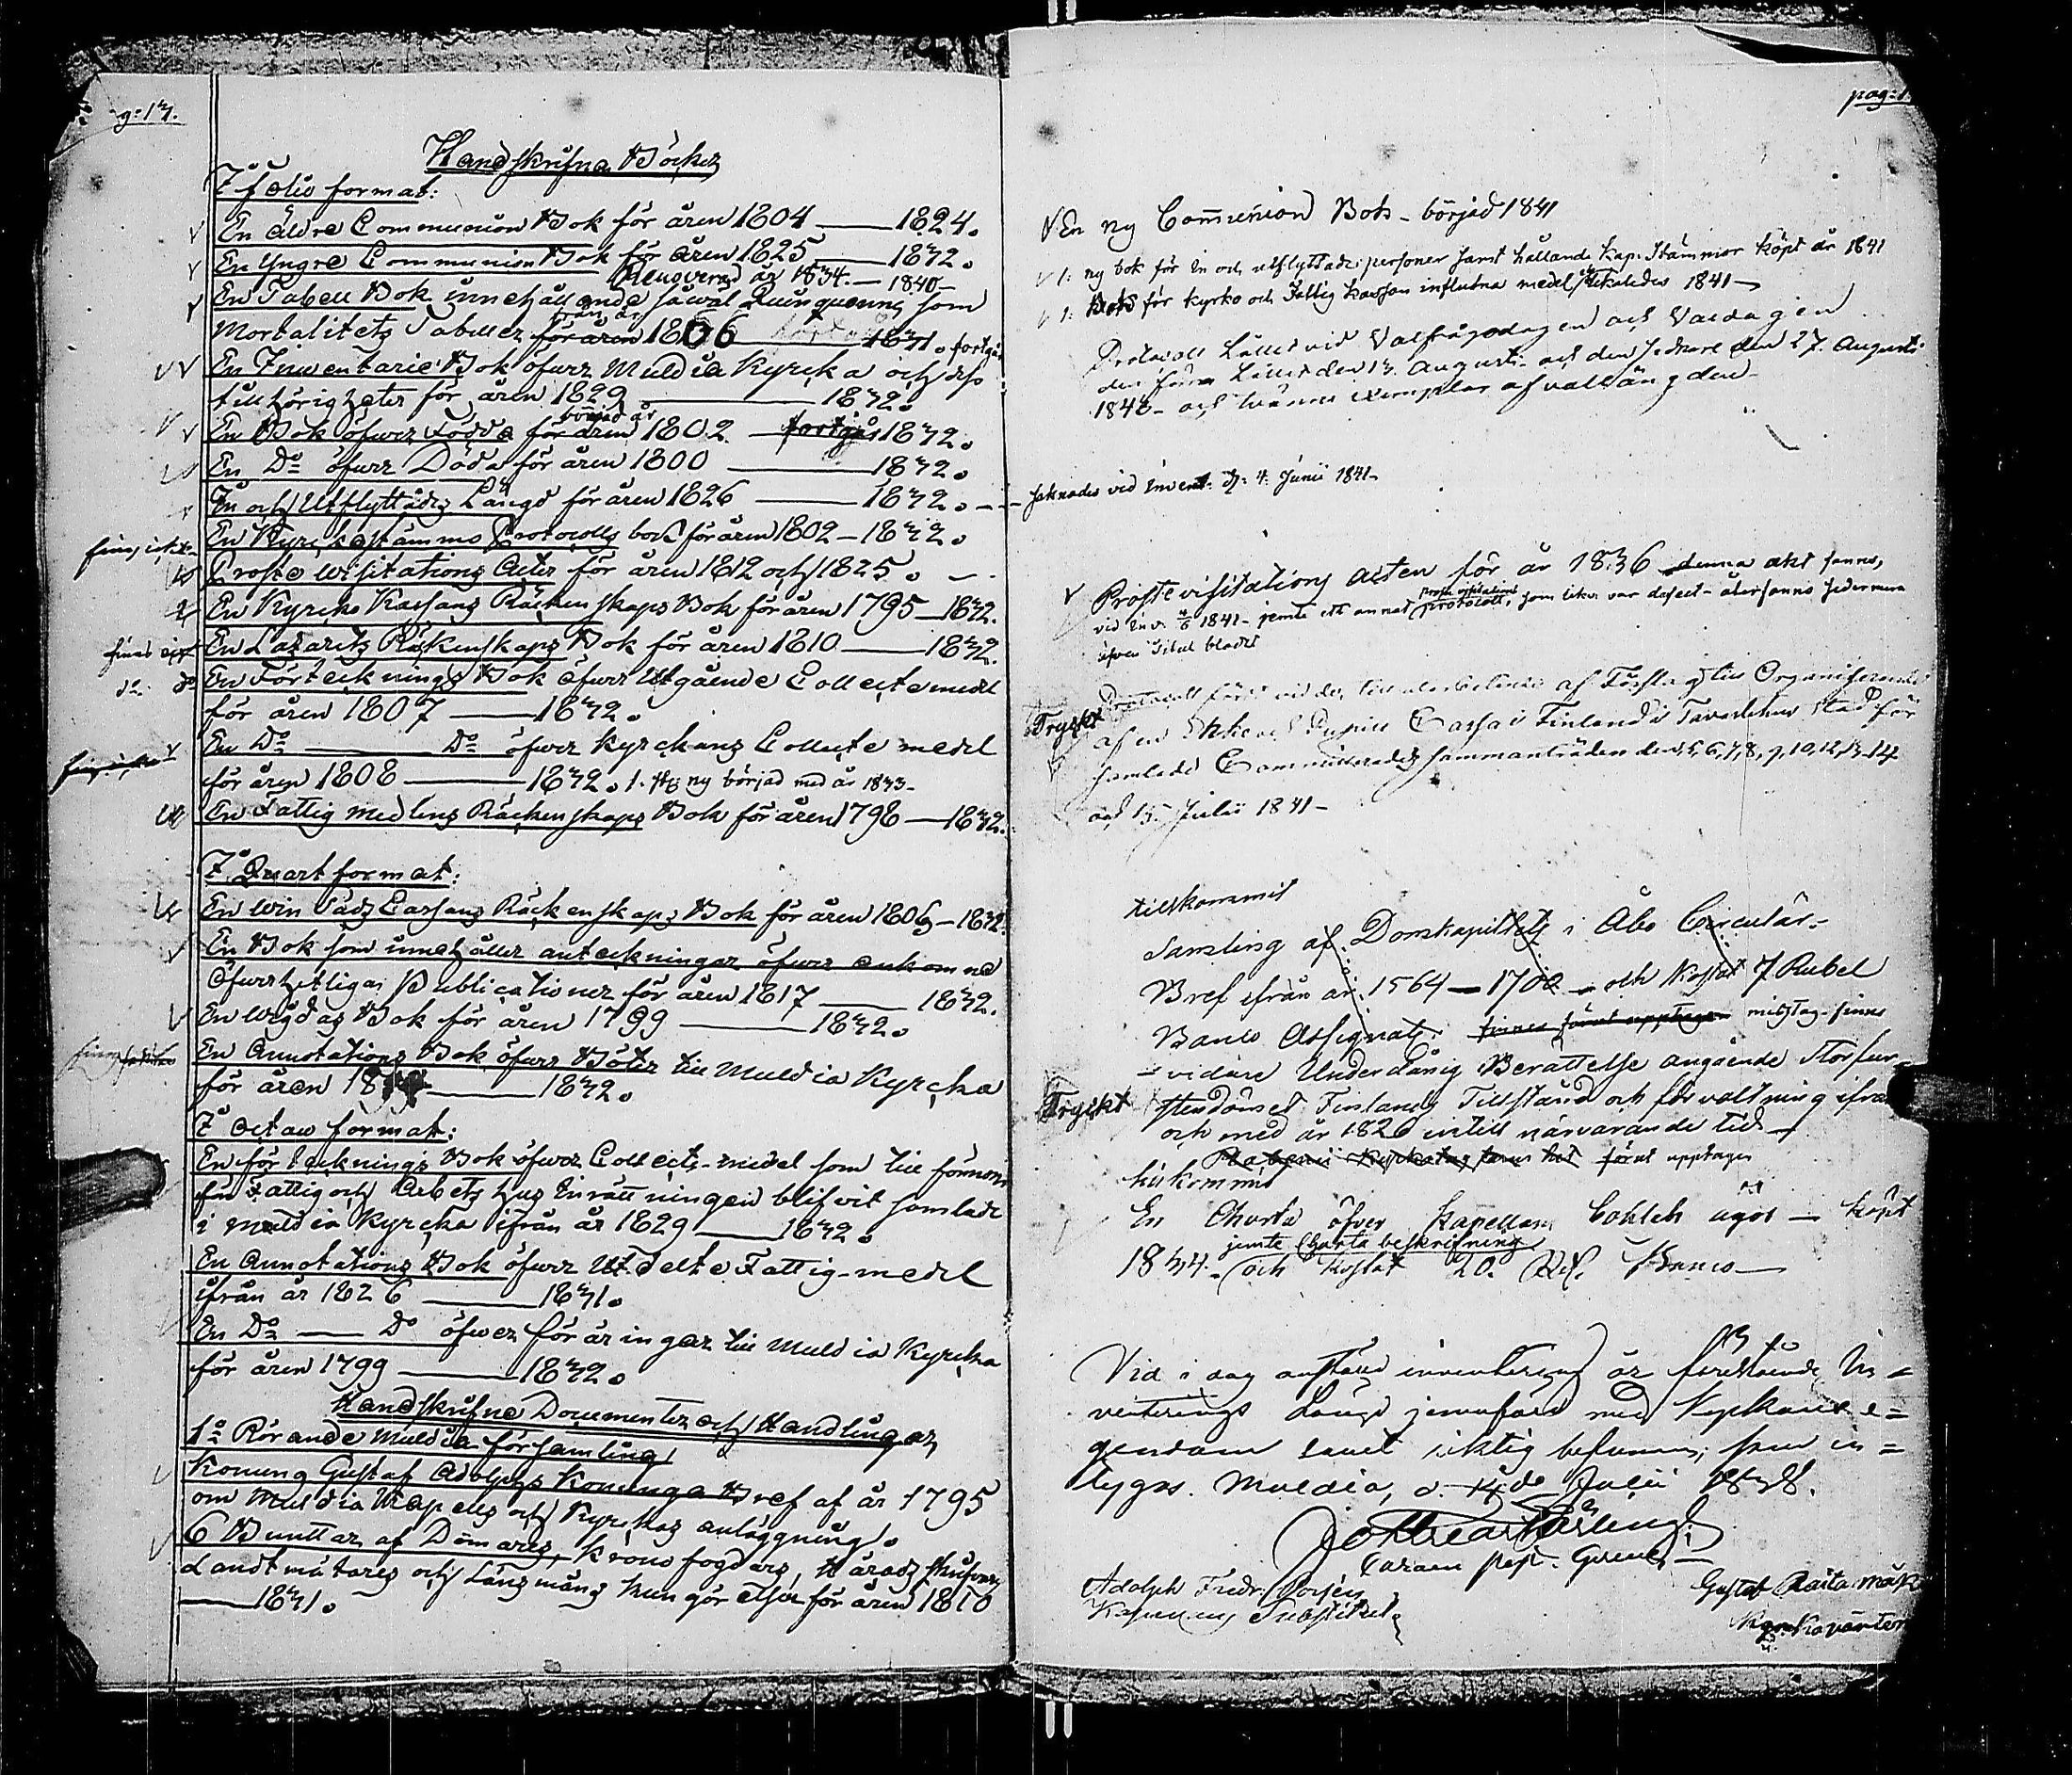 g: 13.
Handskrifna Böcker
I folio format:
En äldre Communion Bok för åren 1804 — 1824.
En Yngre Communion Bok för åren 1825 — 1832.
år 1834. — 1840 —
En Tabell Bok innehållande såwäl Quinquenne som
från år
Mortalitets Tabeller för åren 1806 — 1831. fortgår
En Inventarie Bok öfwer Muldia Kyrcka och dess
tillhörigheter för åren 1829 — 1832.
börjad år
En Bok öfwer Födde för åren 1802 — fortgår 1832.
En Do öfwer Döda för åren 1800 — 1832.
In och Utflyttnings Längd för åren 1826 — 1832. — saknades vid Invent. d. 4. Junii 1841 —
En Kyrckostämmo Protocolls bok för åren 1802 — 1832.
finns icke
Proste Wisitations Acter för åren 1812 och 1825.
En Kyrcko Kassans Räckenskaps Bok för åren 1795 — 1832.
En Lazaretts Räkenskaps Bok för åren 1810 — 1832.
finns ej
En Förtecknings Bok öfwer Utgående Collectemedel
do. do
för åren 1807 — 1832.
En Do — Do öfwer Kyrckans Collecte medel
för åren 1808 — 1832. 1. st. ny börjad med år 1833 —
En Fattig medlens Räckenskaps Bok för åren 1798 — 1832.
I Quart format:
En Win Säds Cassans Räckenskaps Bok för åren 1806 — 1832.
En Bok som innehåller anteckningar öfwer ankomne
Öfwerhetliga Publicationer för åren 1817 — 1832.
En Wigslas Bok för åren 1799 — 1832.
En Annotations Bok öfwer Böter till Muldia Kyrcka
för åren — 1832.
I Octaw format:
En förtecknings Bok öfwer Collects-medel som till förmon
för Fattig och Arbets hus Inrättningen blifvit samlade
i Muldia Kyrcka ifrån år 1829 — 1832.
En Annotations Bok öfwer Utdelte Fattig-medel
ifrån år 1826 — 1831.
En Do — Do öfwer föräringar till Muldia Kyrcka
för åren 1799 — 1832.
Handskrifne Documenter och Handlingar
1o Rörande Muldia församling
Konung Gustaf Adolphs Konunga Bref af år 1795
om Muldia Capells och Kyrckas anläggning.
6 Buntar af Domares, Krono fogdars, Härads skrifvares
Landtmätares och Länsmäns kungörelser för åren 1810
— 1831.
pag: 1
En ny Communion Bok — börjad 1841
1. ny bok för in och utflyttade personer samt hållande Kap. Stämmor köpt år 1841
1. Bok för kyrko och Fattig kassan influtna medel 1841 —
Protocoll hållet vid Valfrågodagen och Valdagen
den förra hållet den 13. Augusti och den sednare den 27. Augusti
184 — och tvänne exemplar af vallängden —
Prostevisitations Acten för år 1836 — denna akt fanns,
Proste visitations
vid Inv. 4/6 1841 — jemte ett annat protocoll, som liker var defect — återfanns sedermera
äfven Titul bladet
Tryckt
Protocoll fördt vid de till utarbetande af Förslag till Organiserandet
af en Enke och Pupill Cassa i Finland i Tavastehus stad för
samlade Committerades sammanträden den 5, 6, 7, 8, 9, 10, 12, 13, 14
och 15. Julii 1841 —
tillkommit
Samling af Domkapittlets i Åbo Circulär-
Bref ifrån år 1564 — 1700 — och Kostat 7 Rubel
Banco Assignat: finnes förut upptagen misstag — finns
Tryckt
— vidare Underdånig Berättelse angående Storfur-
stendömet Finlands Tillstånd och förvaltning ifrån
och med år 1826 intill närvarande tid —
förut upptagen
tillkommit
En Charta öfver Kapellans Bohls ägor — köpt
jemte Charta beskrifning
1834. och kostat 20. Banco —
Vid i dag anstäld inventering är förestående In-
venterings Längd jemnförd med Kyrkans e-
gendom samt riktig befunnen; som in-
tygas. Muldia, d. 14de Julii 1838.
Adolph Fredr.
Kapellans Substitut
Gustaf Raitamäk